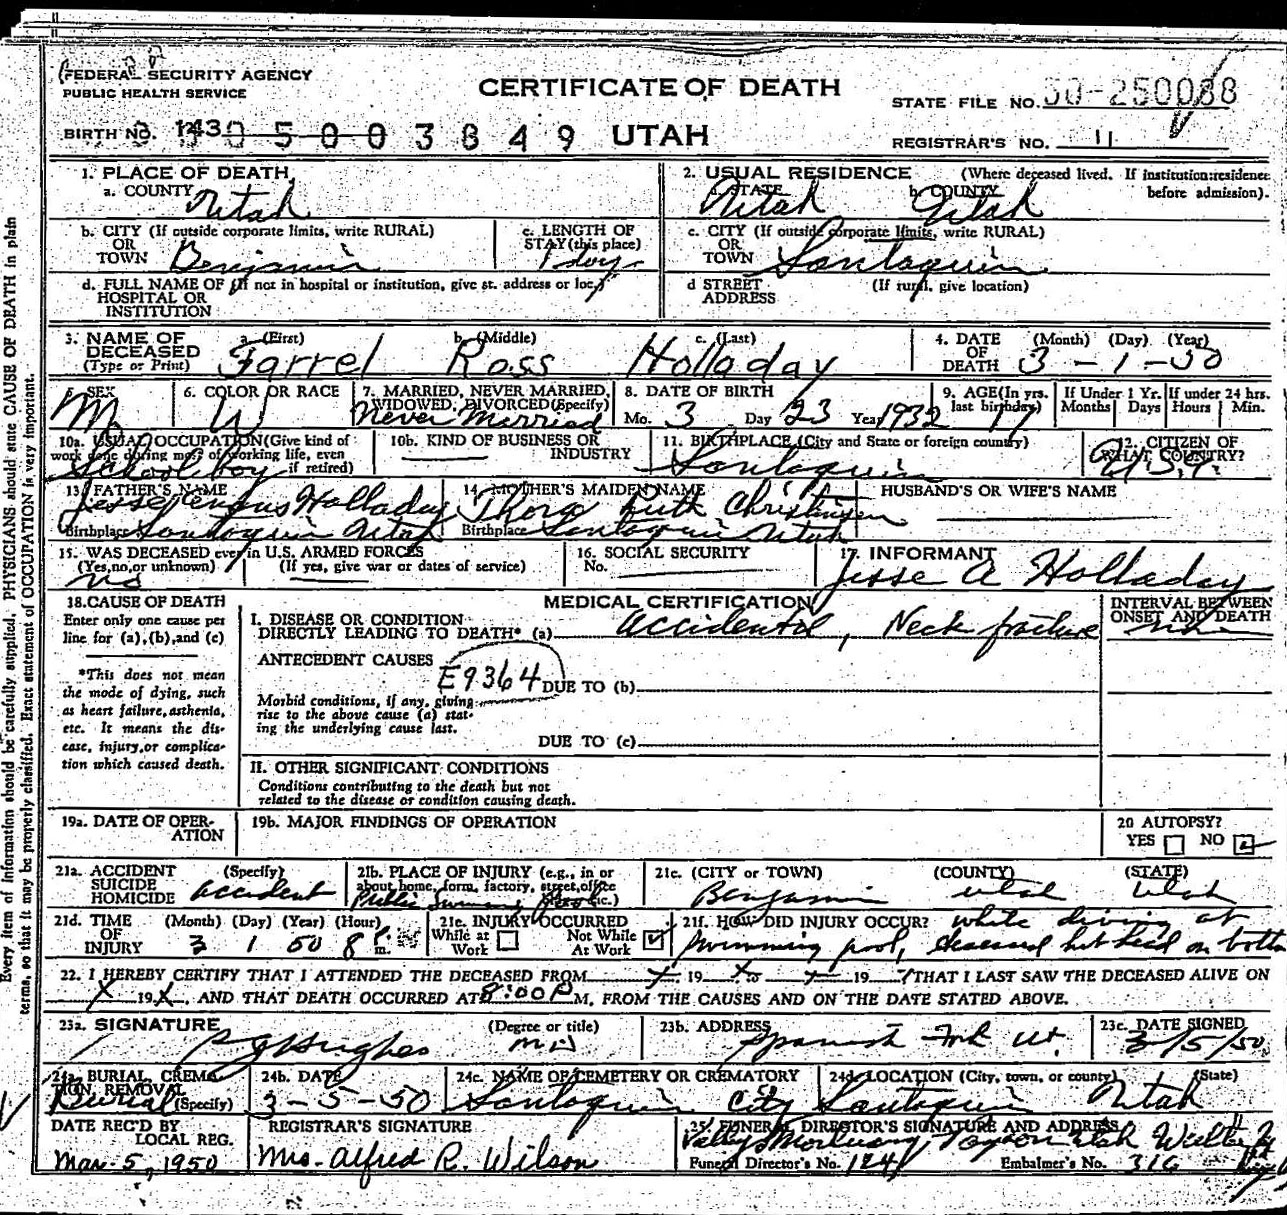 FEDERAL SECURITY AGENCY
PUBLIC HEALTH SERVICE
CERTIFICATE OF DEATH
STATE FILE NO. 50-250088
BIRTH NO. 143 05003849 UTAH
REGISTRAR'S NO. 11
1. PLACE OF DEATH
a. COUNTY Utah
2. USUAL RESIDENCE (Where deceased lived. If institution:residence before admission).
a. STATE Utah b. COUNTY Utah
b. CITY (If outside corporate limits, write RURAL) OR TOWN Benjamin
c. LENGTH OF STAY (this place) 1 day
c. CITY (If outside corporate limits, write RURAL) OR TOWN Santaquin
d. FULL NAME OF (If not in hospital or institution, give st. address or loc.) HOSPITAL OR INSTITUTION
d STREET ADDRESS (If rural, give location)
3. NAME OF DECEASED (Type or Print) a. (First) Farrel b. (Middle) Ross c. (Last) Holladay
4. DATE OF DEATH (Month) (Day) (Year) 3-1-50
5. SEX M
6. COLOR OR RACE W
7. MARRIED, NEVER MARRIED, WIDOWED, DIVORCED (Specify) Never Married
8. DATE OF BIRTH Mo. 3 Day 23 Year 1932
9. AGE (In yrs. last birthday) 17
If Under 1 Yr. Months Days
If under 24 hrs. Hours Min.
10a. USUAL OCCUPATION (Give kind of work done during most of working life, even if retired) School boy
10b. KIND OF BUSINESS OR INDUSTRY
11. BIRTHPLACE (City and State or foreign country) Santaquin
12. CITIZEN OF WHAT COUNTRY? U.S.A.
13. FATHER'S NAME Jesse Holladay
Birthplace Santaquin Utah
14. MOTHER'S MAIDEN NAME Thora Ruth Christensen
Birthplace Santaquin Utah
HUSBAND'S OR WIFE'S NAME
15. WAS DECEASED ever in U.S. ARMED FORCES
(Yes, no, or unknown) (If yes, give war or dates of service)
no
16. SOCIAL SECURITY No.
17. INFORMANT
Jesse A Holladay
18. CAUSE OF DEATH
Enter only one cause per line for (a), (b), and (c)
*This does not mean the mode of dying, such as heart failure, asthenia, etc. It means the disease, injury, or complication which caused death.
MEDICAL CERTIFICATION
I. DISEASE OR CONDITION DIRECTLY LEADING TO DEATH* (a) Accidental, Neck fracture
INTERVAL BETWEEN ONSET AND DEATH
ANTECEDENT CAUSES
E9364
DUE TO (b)
Morbid conditions, if any, giving rise to the above cause (a) stating the underlying cause last.
DUE TO (c)
II. OTHER SIGNIFICANT CONDITIONS
Conditions contributing to the death but not related to the disease or condition causing death.
19a. DATE OF OPERATION
19b. MAJOR FINDINGS OF OPERATION
20 AUTOPSY?
YES NO
21a. ACCIDENT SUICIDE HOMICIDE (Specify) accident
21b. PLACE OF INJURY (e.g., in or about home, farm, factory, street, office etc.) Public Swimming Pool
21c. (CITY or TOWN) (COUNTY) (STATE)
Benjamin Utah Utah
21d. TIME OF INJURY (Month) (Day) (Year) (Hour) 3 1 50 8 P. m.
21e. INJURY OCCURRED While at Work Not While At Work
21f. HOW DID INJURY OCCUR? while diving at
swimming pool, deceased hit head on bottom
22. I HEREBY CERTIFY THAT I ATTENDED THE DECEASED FROM x 19 x to x 19 ? THAT I LAST SAW THE DECEASED ALIVE ON
X 19 X, AND THAT DEATH OCCURRED AT 8:00 P M, FROM THE CAUSES AND ON THE DATE STATED ABOVE.
23a. SIGNATURE (Degree or title)
Hughes MD
23b. ADDRESS
Spanish Fork Ut.
23c. DATE SIGNED
3/5/50
24a. BURIAL, CREMATION, REMOVAL (Specify) Burial
24b. DATE 3-5-50
24c. NAME OF CEMETERY OR CREMATORY Santaquin City
24d. LOCATION (City, town, or county) (State) Santaquin Utah
DATE REC'D BY LOCAL REG.
Mar. 5, 1950
REGISTRAR'S SIGNATURE
Mrs. Alfred R. Wilson
25. FUNERAL DIRECTOR'S SIGNATURE AND ADDRESS
Valley Mortuary, Payson Utah
Funeral Director's No. 124 Embalmer's No. 316
Every item of information should be carefully supplied. PHYSICIANS should state CAUSE OF DEATH in plain
terms, so that it may be properly classified. Exact statement of OCCUPATION is very important.